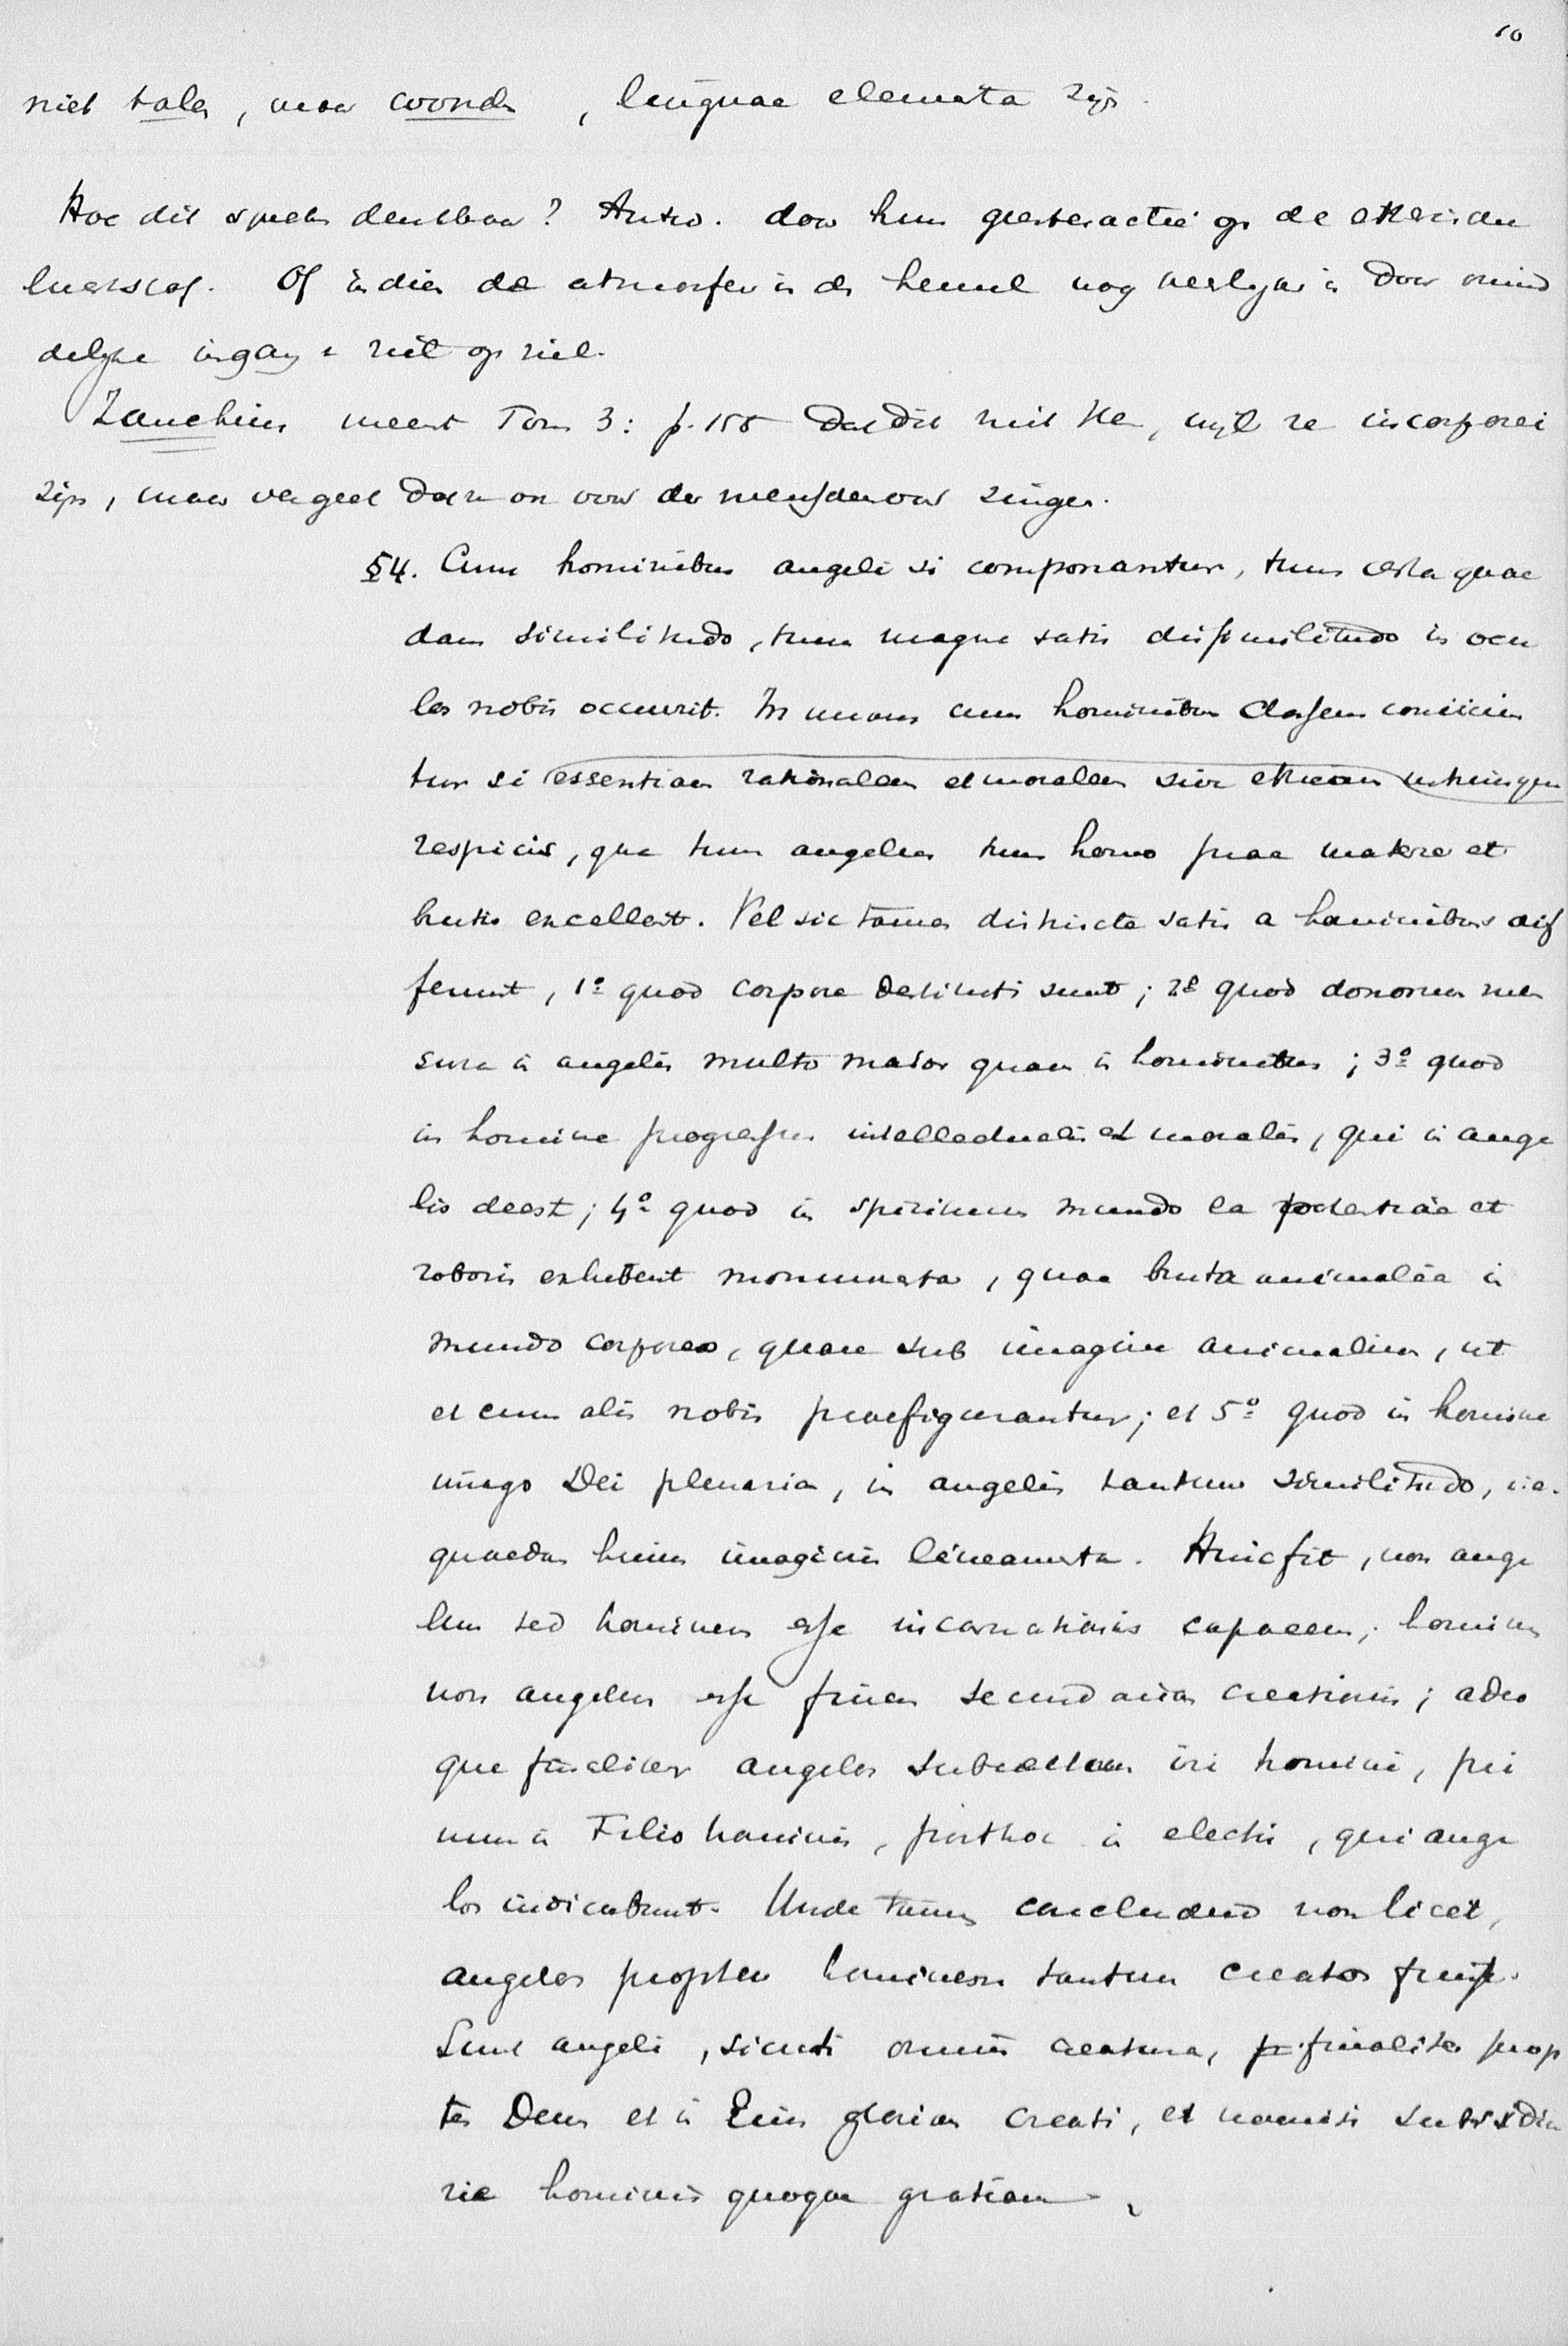 10
niet talen, maar woorden, linguae elementa zijn.
Hoe dit spreken denkbaar? Antw. door hun geestesactie op de etherische
luchtstof. Of indien de atmosfeer in den hemel nog verfijnd is door onmid
delijke ingang v. ziel op ziel.
Zanchius meent Tom 3: p. 158 dat dit niet kan, wijl ze incorporei
zijn, maar vergeet dat ze ons voor de menschen ooren zingen.
§4. Cum hominibus angeli si componantur, tum certa quae
dam similitudo, tum magna satis dissimilitudo in ocu
los nobis occurrit. In unam cum hominibus classem coniiciun
tur si essentiam rationalem et moralem sive ethicam utriusque
respicis, qua tum angelus tum homo prae materia et
brutis excellent. Vel sic tamen distincte satis a hominibus dif
ferunt, 1º quod corpore destituti sunt; 2º quod donorum men
sura in angelis multo maior quam in hominibus; 3º quod
in homine progressus intellectualis et moralis, qui in ange
lis deest; 4º quod in spirituum mundo ea potentiae et
roboris exhibent monumenta, quae bruta animalia in
mundo corporeo, quare sub imagine animalium, ut
et cum alis nobis praefigurantur; et 5º quod in homine
imago Dei plenaria, in angelis tantum similitudo, i.e.
quaedam huius imaginis lineamenta. Hinc fit, non ange
lum sed hominem esse incarnationis capacem; hominem
non angelum esse finem secundarium creationis; adeo
que finaliter angelos subiectum iri homini, pri
mum in Filio hominis, posthoc in electis, qui ange
los iudicabunt. Unde tamen concludendo non licet,
angelos propter hominem tantum creatos fuisse.
Sunt angeli, sicuti omnis creatura, finaliter prop
ter Deum et in Eius gloriam creati, et nonnisi subsidia
rie hominis quoque gratiam.